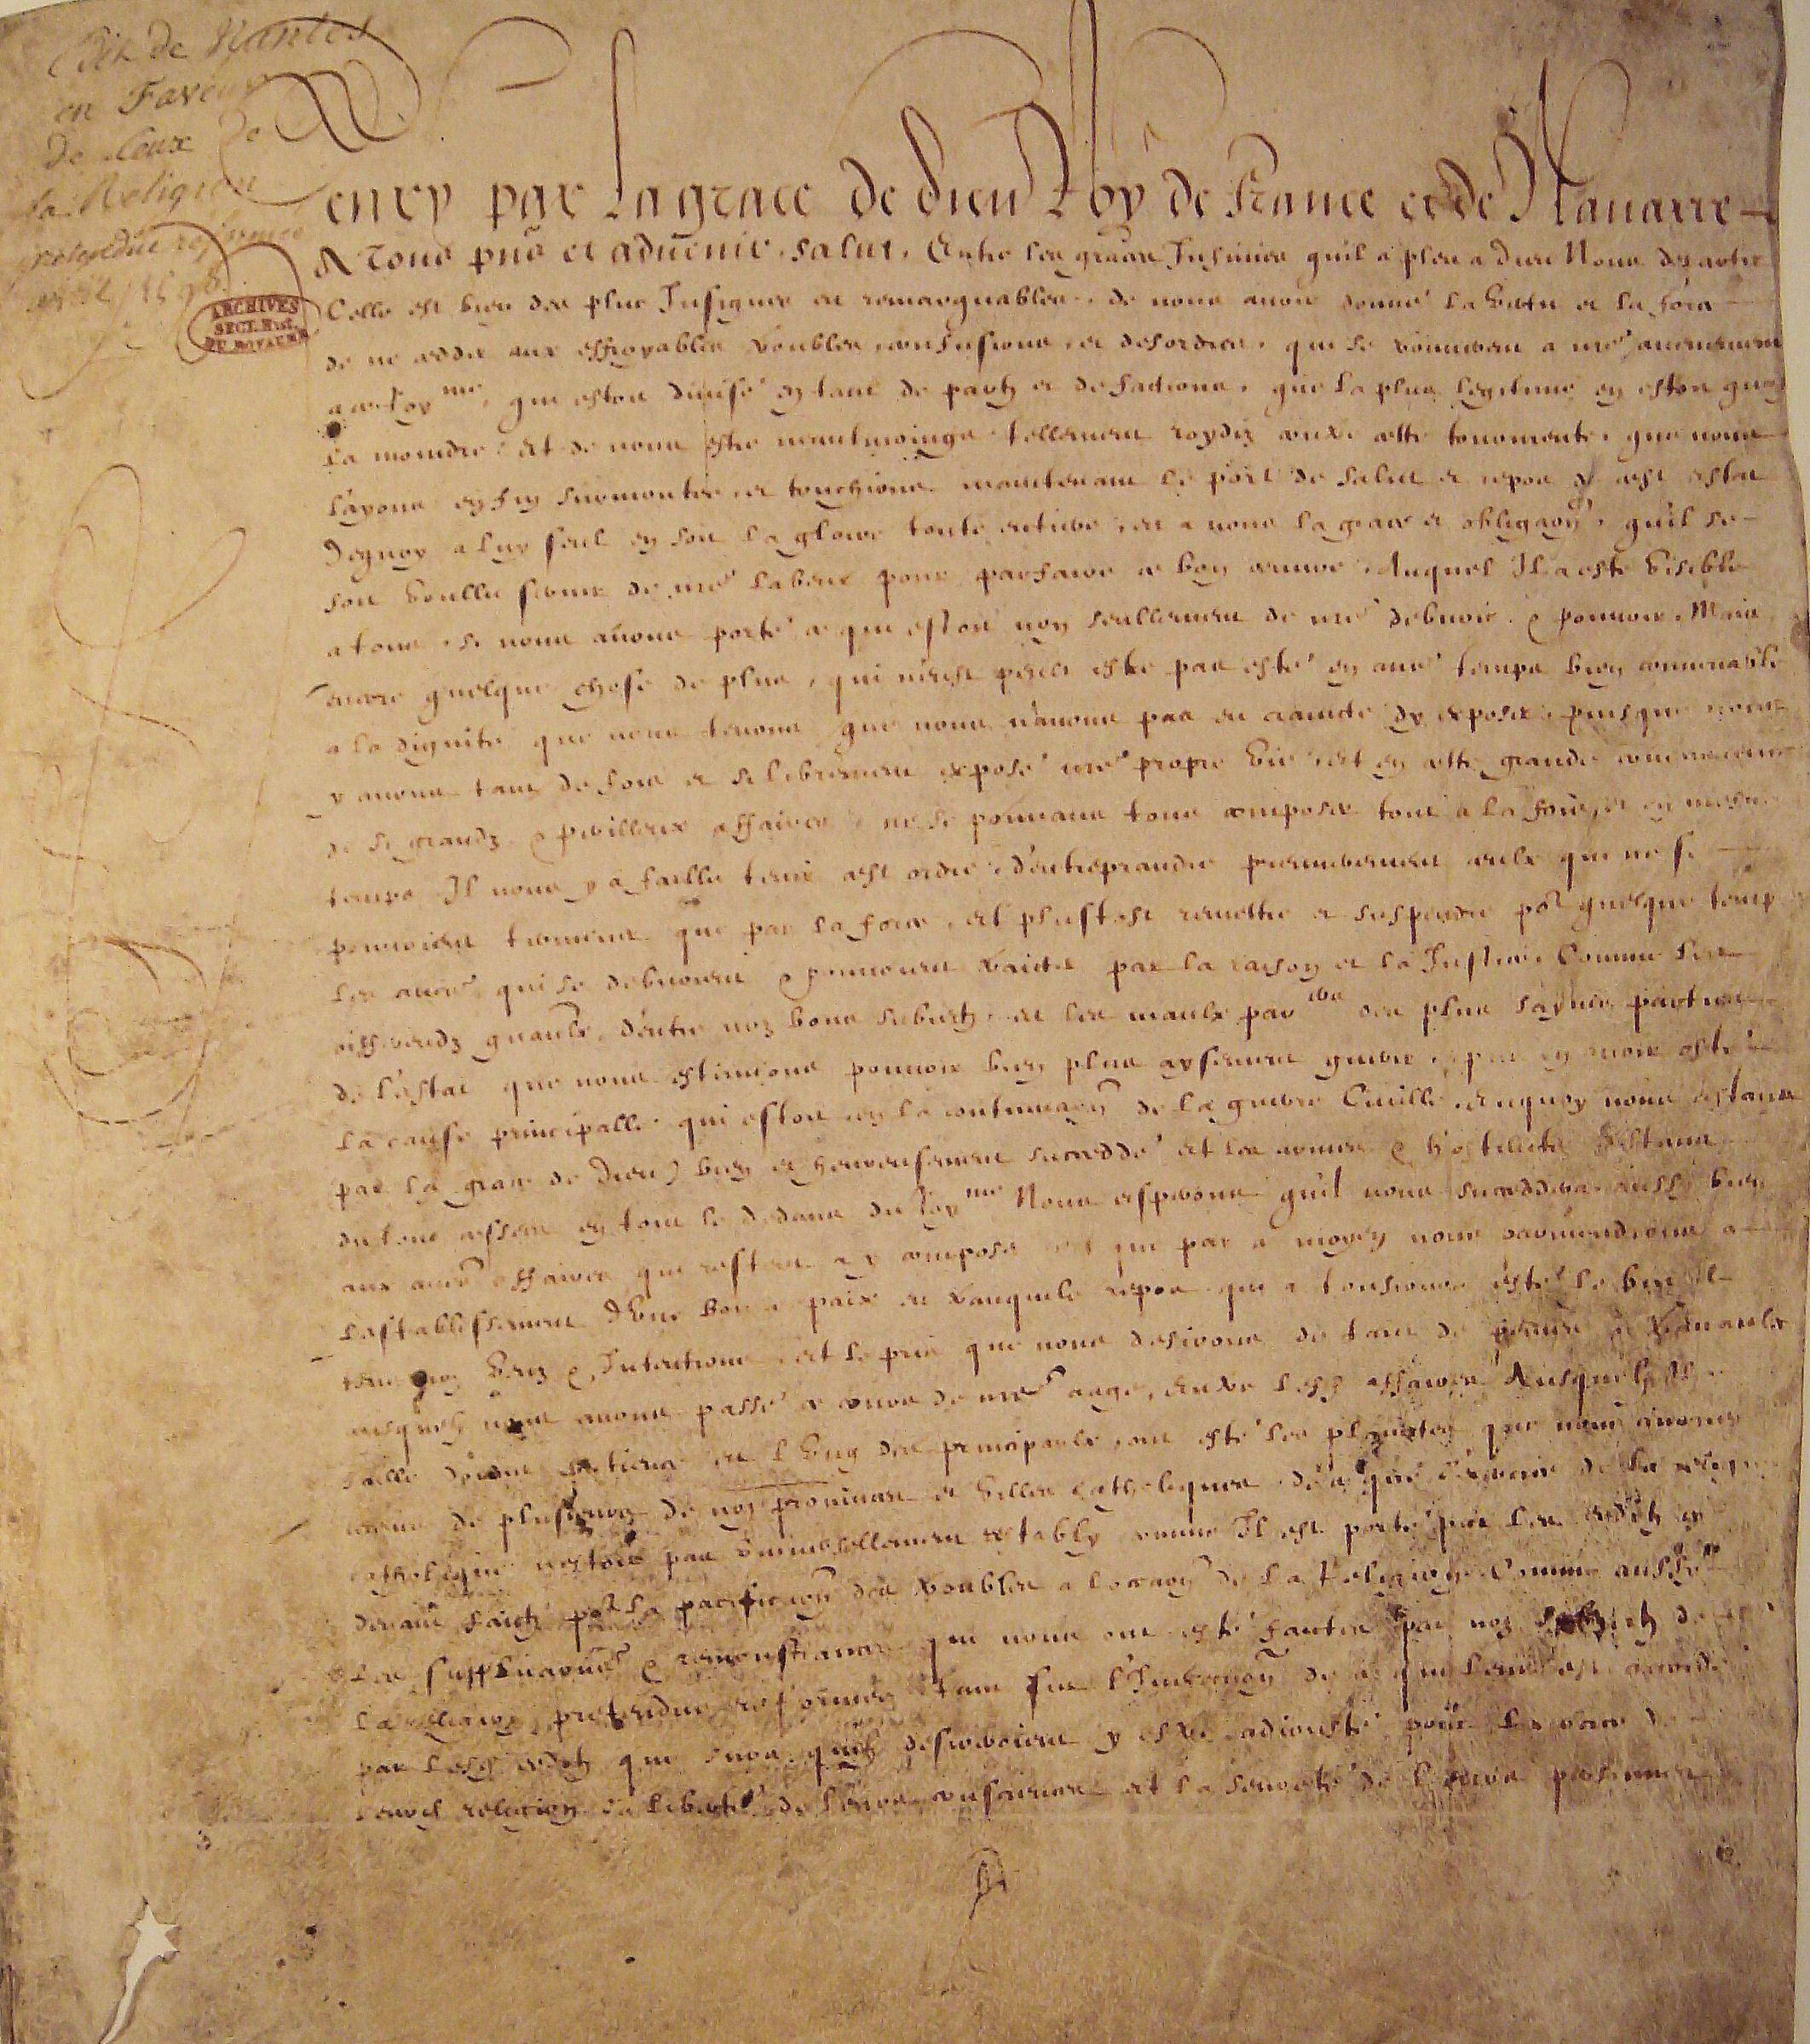 Edit de Nantes
en Faveur
de Ceux de
la Religion
pretendue reformée
avril 1598
ARCHIVES
SECT. HIST.
DU ROYAUME
enry par la grace de dieu Roy de France et de Nauarre
A Tous pñs et aduenir, salut. Entre les graces Infinies quil a pleu a dieu Nous departir
Celle est bien des plus Insignes et remarquables, de nous auoir donné la vertu et la force
de ne cedder aux effroyables troubles, confusions, et desordres, qui se trouuerent a nre aduenement
a ce Royme, qui estoit diuisé en tant de partz et de factions, que la plus legitime en estoit quasi
la moindre, Et de nous estre neantmoings tellement roydiz contre ceste tourmente, que nous
layons enfin surmontee, et touchions maintenant le port de salut et repos de cest estat
Dequoy a luy seul en soit la gloire toute entiere, et a nous la grace et obligaon, quil se
soit voullu seruir de nre labeur pour parfaire ce bon œuure, Auquel Il a esté visible
a tous, si nous auons porté ce qui estoit non seullement de nre debuoir & pouuoir, Mais
encore quelque chose de plus, qui neust peult estre pas esté en autre temps bien conuenable
a la dignité que nous tenons, que nous nauons pas eu crainte dy exposer, puisque nous
y auons tant de fois et si librement exposé nre propre vie, Et en ceste grande concurrence
de si grandz & perilleux affaires, ne se pouuans tous composer tout a la fois, et en mesme
temps, Il nous y a faillu tenir cest ordre, dentreprendre premierement ceulx qui ne se
pouuoient terminer que par la force, Et plustost remettre et suspendre por quelque temps
les autres, qui se debuoient & pouuoient traicter par la raison et la Justice, Comme les
differendz gnaulx, dentre noz bons subiectz, et les maulx parers des plus saynes parties
de lestat que nous estimions pouuoir bien plus aysement guerir, apres en auoir osté
la cause principalle qui estoit en la continuaon de la guerre Ciuille, Enquoy nous estans
par la grace de dieu) bien et heureusement succeddé, Et les armes & hostilitez estans
du tout cessees en tout le dedans du Royme Nous esperons quil nous succeddera aussy bien
aux autres affaires qui restent a y composer et que par ce moyen nous paruiendrons a
lestablissement dvne bonne paix et tranquille repos qui a tousiours esté le but
de tous noz vœuz & Intentions, Et le prix que nous desirons de tant de peines & trauaulx
ausquelz nous auons passé ce cours de nre aage, Entre lesd affaires Ausquelz Il a
faillu donner patience, et lvng des principaulx, ont esté les plainctes que nous auons
receues de plusieurs de noz prouinces et villes catholiques de ce que lexercice de la religion
catholique nestoit pas vniuersellement restably comme Il est porté par les edictz cy
deuant faictz por la pacificaon des troubles a loccaon de la Religion, Comme aussy
Les supplicaons & remonstrances qui nous ont esté faictes par noz subiectz de
la religion pretendue reformee tant sur lInexecuon de ce qui leur est accordé
par lesd edictz que sur ce quilz desireroient y estre adiousté pour lexercice de
leurd religion, la liberté de leurs consciences Et la seureté de leurs personnes